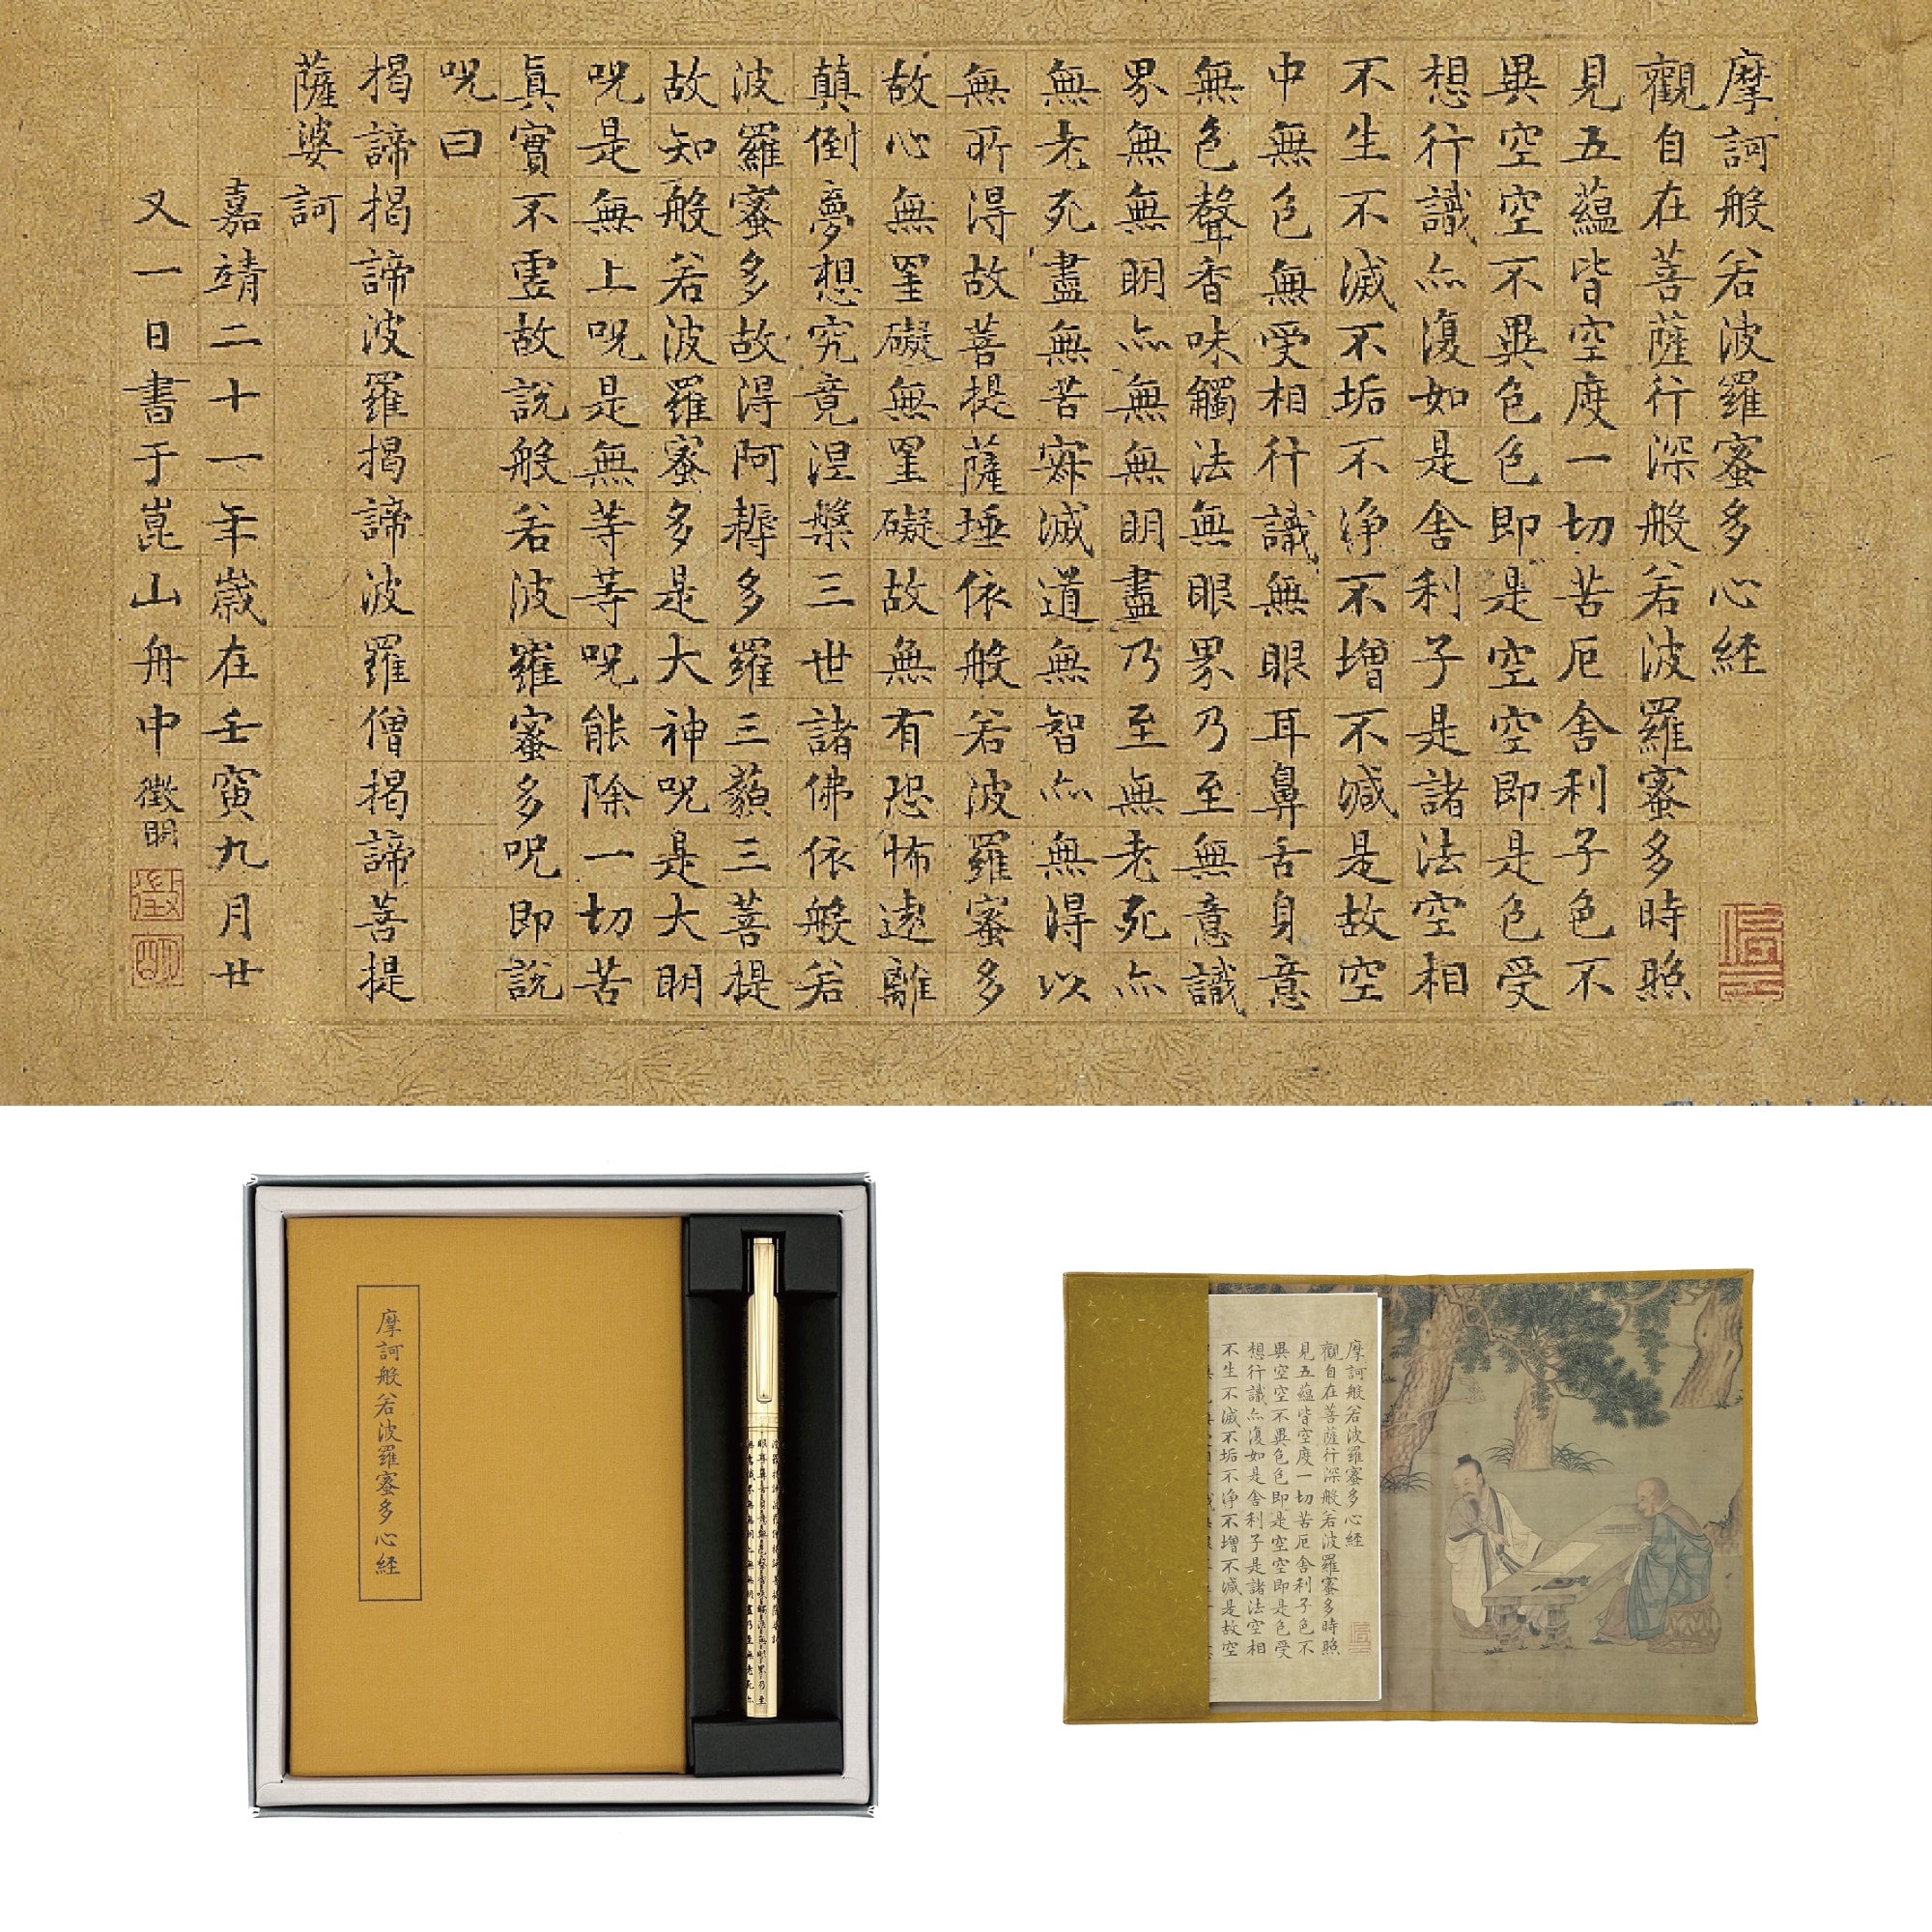 摩訶般若波羅蜜多心經
觀自在菩薩行深般若波羅蜜多時照
見五蘊皆空度一切苦厄舍利子色不
異空空不異色色即是空空即是色受
想行識亦復如是舍利子是諸法空相
不生不滅不垢不淨不增不減是故空
中無色無受相行識無眼耳鼻舌身意
無色聲香味觸法無眼界乃至無意識
界無無明亦無無明盡乃至無老死亦
無老死盡無苦寂滅道無智亦無得以
無所得故菩提薩埵依般若波羅蜜多
故心無罣礙無罣礙故無有恐怖遠離
顛倒夢想究竟涅槃三世諸佛依般若
波羅蜜多故得阿耨多羅三藐三菩提
故知般若波羅蜜多是大神呪是大明
呪是無上呪是無等等呪能除一切苦
真實不虛故說般若波羅蜜多呪即說
呪曰
揭諦揭諦波羅揭諦波羅僧揭諦菩提
薩婆訶
嘉靖二十一年歲在壬寅九月廿
又一日書于崑山舟中徵明
徵
明
摩訶般若波羅蜜多心經
摩訶般若波羅蜜多心經
觀自在菩薩行深般若波羅蜜多時照
見五蘊皆空度一切苦厄舍利子色不
異空空不異色色即是空空即是色受
想行識亦復如是舍利子是諸法空相
不生不滅不垢不淨不增不減是故空